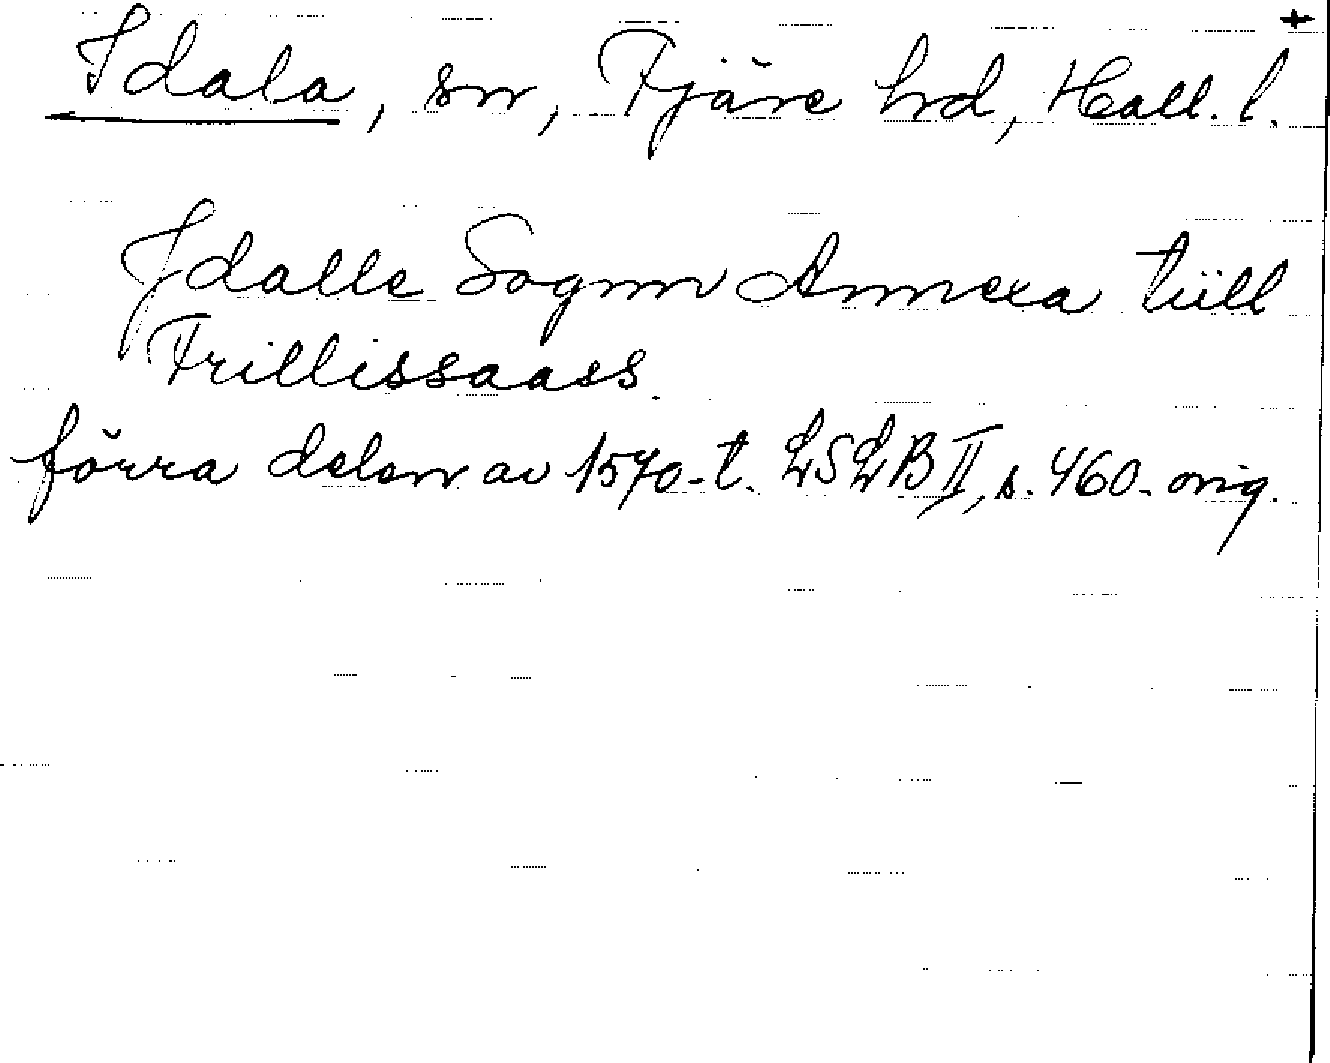 Idala, sn, Fjäre hd, Hall. l. +
Jdalle Sognn Annexa tüll
Frillissaass.
förra delen av 1570-t. LSLB II, s. 460. orig.